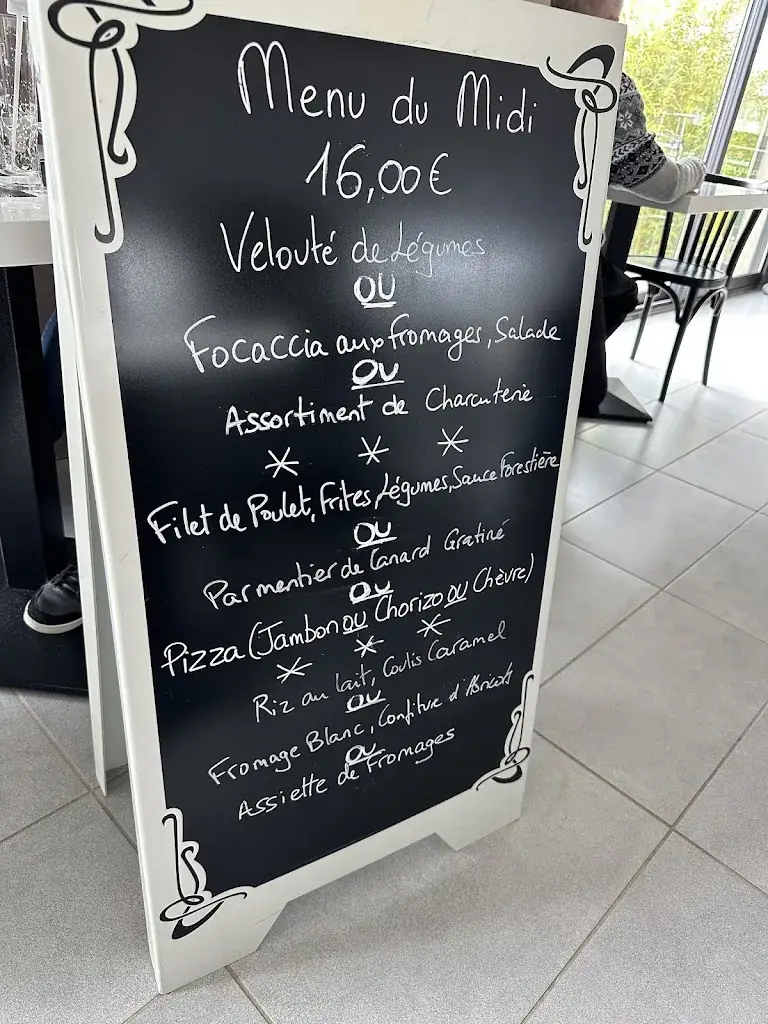 Menu du Midi
16,00€
Velouté de Légumes
OU
Focaccia aux fromages, Salade
OU
Assortiment de Charcuterie
* * *
Filet de Poulet, Frites, Légumes, Sauce Forestière
OU
Parmentier de Canard Gratiné
OU
Pizza (Jambon ou Chorizo ou Chèvre)
* * *
Riz au lait, Coulis Caramel
OU
Fromage Blanc, Confiture d'Abricots
OU
Assiette de Fromages